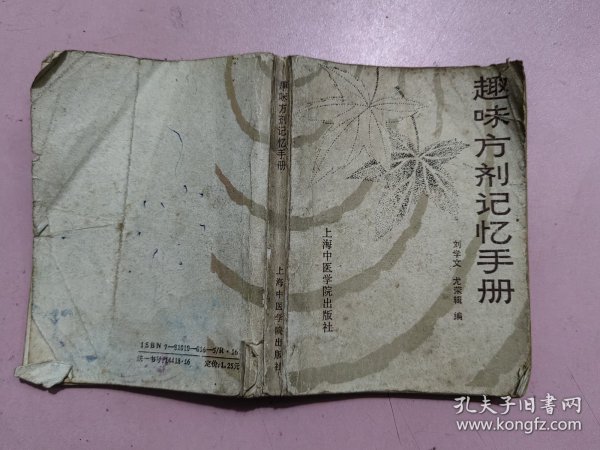 趣味方剂记忆手册
刘学文 尤荣辑 编
上海中医学院出版社
趣味方剂记忆手册
上海中医学院出版社
定价:1.25元
孔夫子旧书网
www.kongfz.com